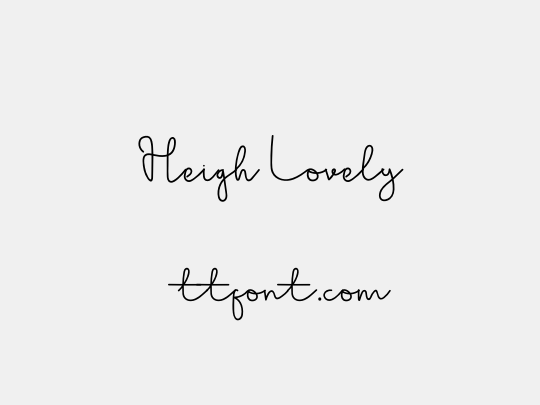 Heigh Lovely
ttfont.com